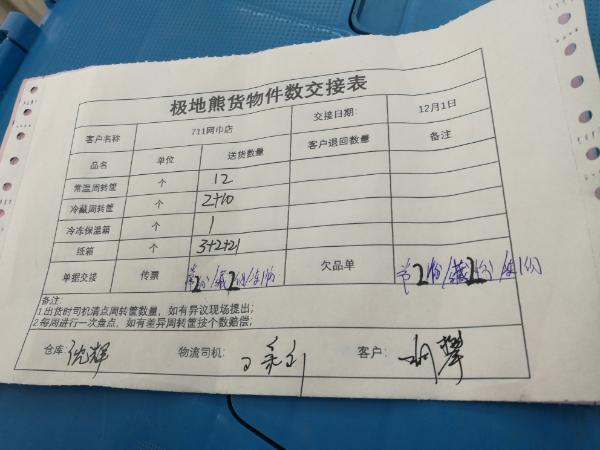 极地熊货物件数交接表
客户名称 711网巾店 交接日期: 12月1日
品名 单位 送货数量 客户退回数量 备注
常温周转筐 个 12
冷藏周转筐 个 2+10
冷冻保温箱 个 1
纸箱 个 3+2+21
单据交接 传票 常2份/藏2份/冻1份 欠品单 常2份/藏2份/冻1份
备注:
1.出货时司机清点周转筐数量，如有异议现场提出;
2.每周进行一次盘点，如有差异周转筐按个数赔偿;
仓库: 物流司机: 客户: